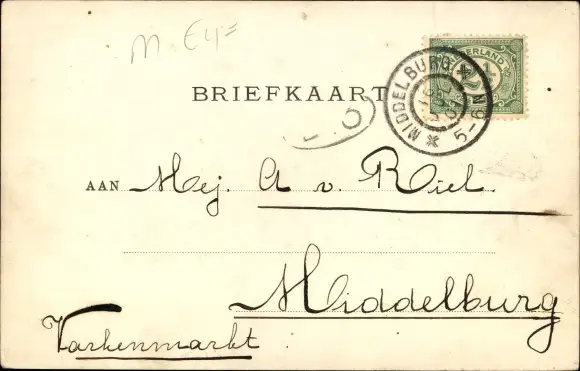 M E4=
NEDERLAND
MIDDELBURG
5-6N
BRIEFKAART
AAN Mej. A v. Riel
Middelburg
Varkenmarkt.